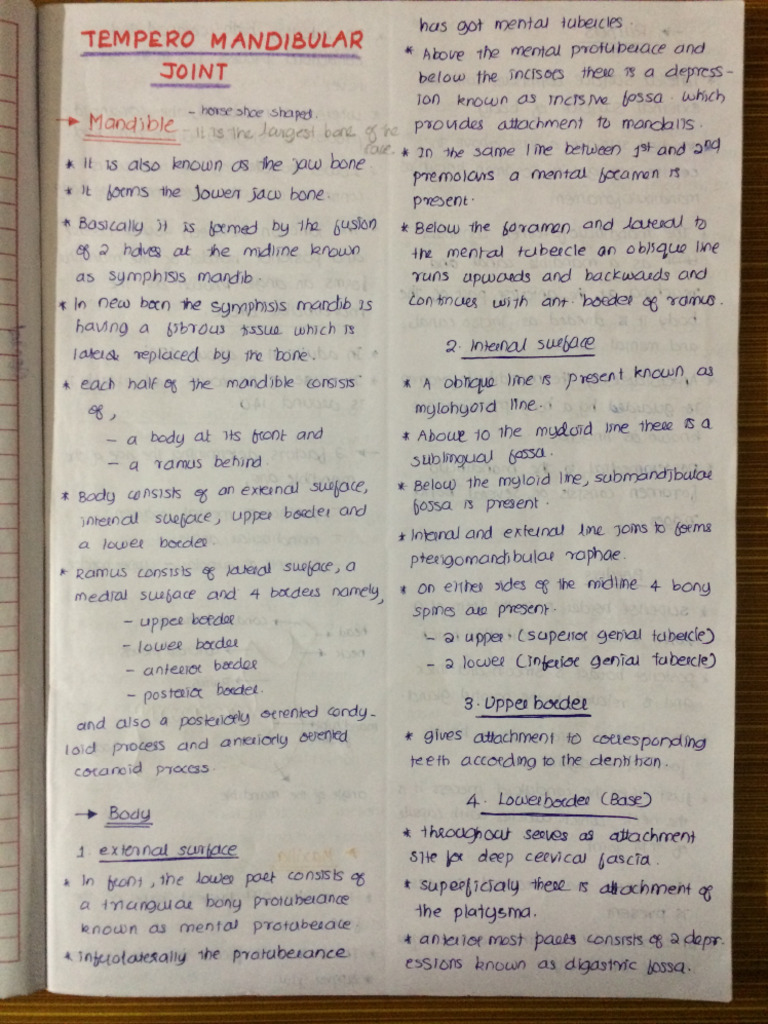 TEMPERO MANDIBULAR
JOINT
- horse shoe shaped.
→ Mandible - It is the largest bone of the
face.
* It is also known as the jaw bone
* It forms the lower jaw bone.
* Basically it is formed by the fusion
of 2 halves at the midline known
as symphisis mandib.
* In new born the symphisis mandib is
having a fibrous tissue which is
later replaced by the bone.
* each half of the mandible consists
of,
- a body at its front and
- a ramus behind.
* Body consists of an external surface,
internal surface, upper border and
a lower border.
* Ramus consists of lateral surface, a
medial surface and 4 borders namely,
- upper border
- lower border
- anterior border
- posterior border.
and also a posteriorly oriented condy-
loid process and anteriorly oriented
coronoid process.
→ Body
1. external surface
* In front, the lower part consists of
a triangular bony protuberance
known as mental protuberace
* inferolaterally the protuberance
has got mental tubercles.
* Above the mental protuberace and
below the incisors there is a depress-
ion known as incisive fossa which
provides attachment to mandalis.
* In the same line between 1st and 2nd
premolars a mental foramen is
present.
* Below the foramen and lateral to
the mental tubercle an oblique line
runs upwards and backwards and
continues with ant. border of ramus.
2. Internal surface
* A oblique line is present known as
mylohyoid line.
* Above to the myloid line there is a
sublingual fossa.
* Below the myloid line, submandibular
fossa is present.
* Internal and external line joins to forms
pterigomandibular raphae.
* on either sides of the midline 4 bony
spines are present.
- 2 upper (superior genial tubercle)
- 2 lower (inferior genial tubercle)
3. Upper border
* gives attachment to corresponding
teeth according to the dentition.
4. Lower border (Base)
* throughout serves as attachment
site for deep cervical fascia.
* superficialy there is attachment of
the platysma.
* anterior most paers consists of 2 depr-
essions known as digastric fossa.